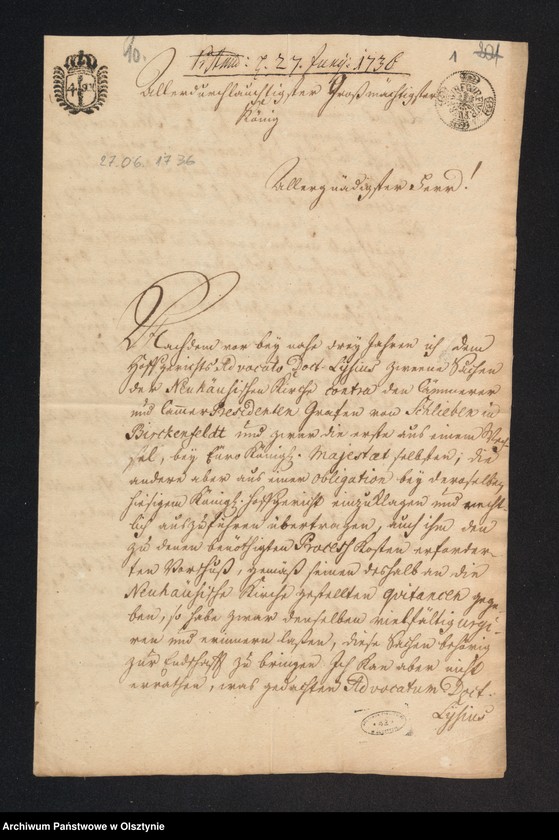 10.
Pr̃. d. 27. Junÿ: 1736
1
201
Allerdurchlauchtigster Großmächtigster
König
27.06.1736
Allergnädigster Herr!
Nachdem vor bey nahe drey Jahren ich dem
Hoffgerichts Advocato Doct. Lysius zweene Sachen
der Neuhäusischen Kirche contra den Cämmerer
und Camer Presidenten Grafen von Schlieben in
Birckenfeldt und zwar die erste aus einem Wech-
sel, bey Euro Königl. Majestaet selbsten, die
andere aber aus einer obligation bey derselben
hiesigem Königl. Hoffgericht einzuklagen und recht-
lich auszuführen übertragen, auch ihm den
zu denen benöthigten Process Kosten erforder-
ten Vorschuß, gemäß seinen deshalb an die
Neuhäusische Kirche gestellten Qvitancen gege-
ben, so habe zwar denselben vielfältig urgi-
ren und erinnern laßen, diese Sachen behörig
zur Endschafft zu bringen Ich kan aber nicht
errathen, was gedachten Advocatum Doct.
Lysius
Archiwum Państwowe w Olsztynie